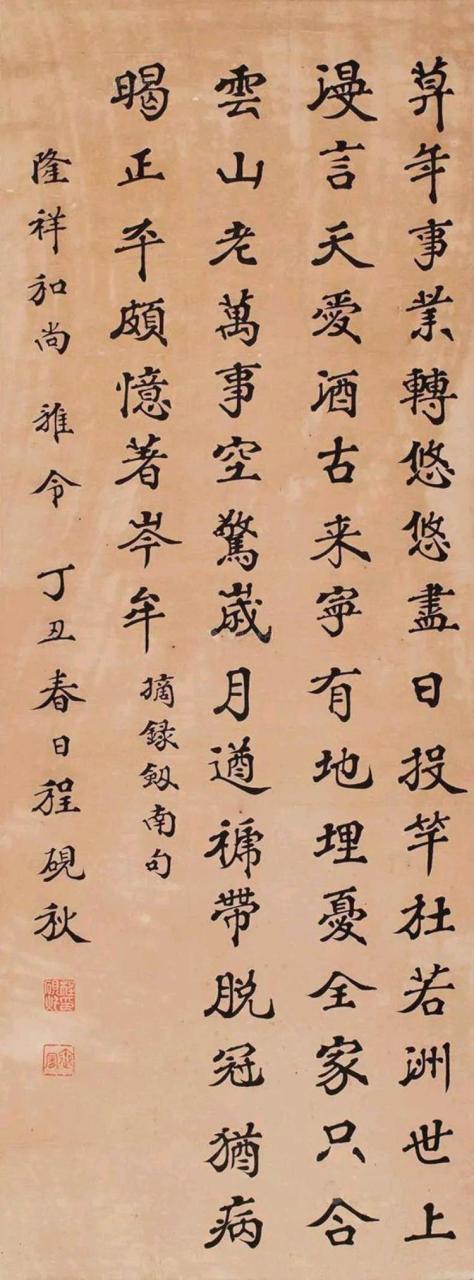 莫年事業轉悠悠盡日投竿杜若洲世上
漫言天愛酒古来寧有地埋憂全家只合
雲山老萬事空驚歲月遒褫帶脱冠猶病
暍正平頗憶著岑牟 摘録劔南句
隆祥和尚 雅令 丁丑春日程硯秋